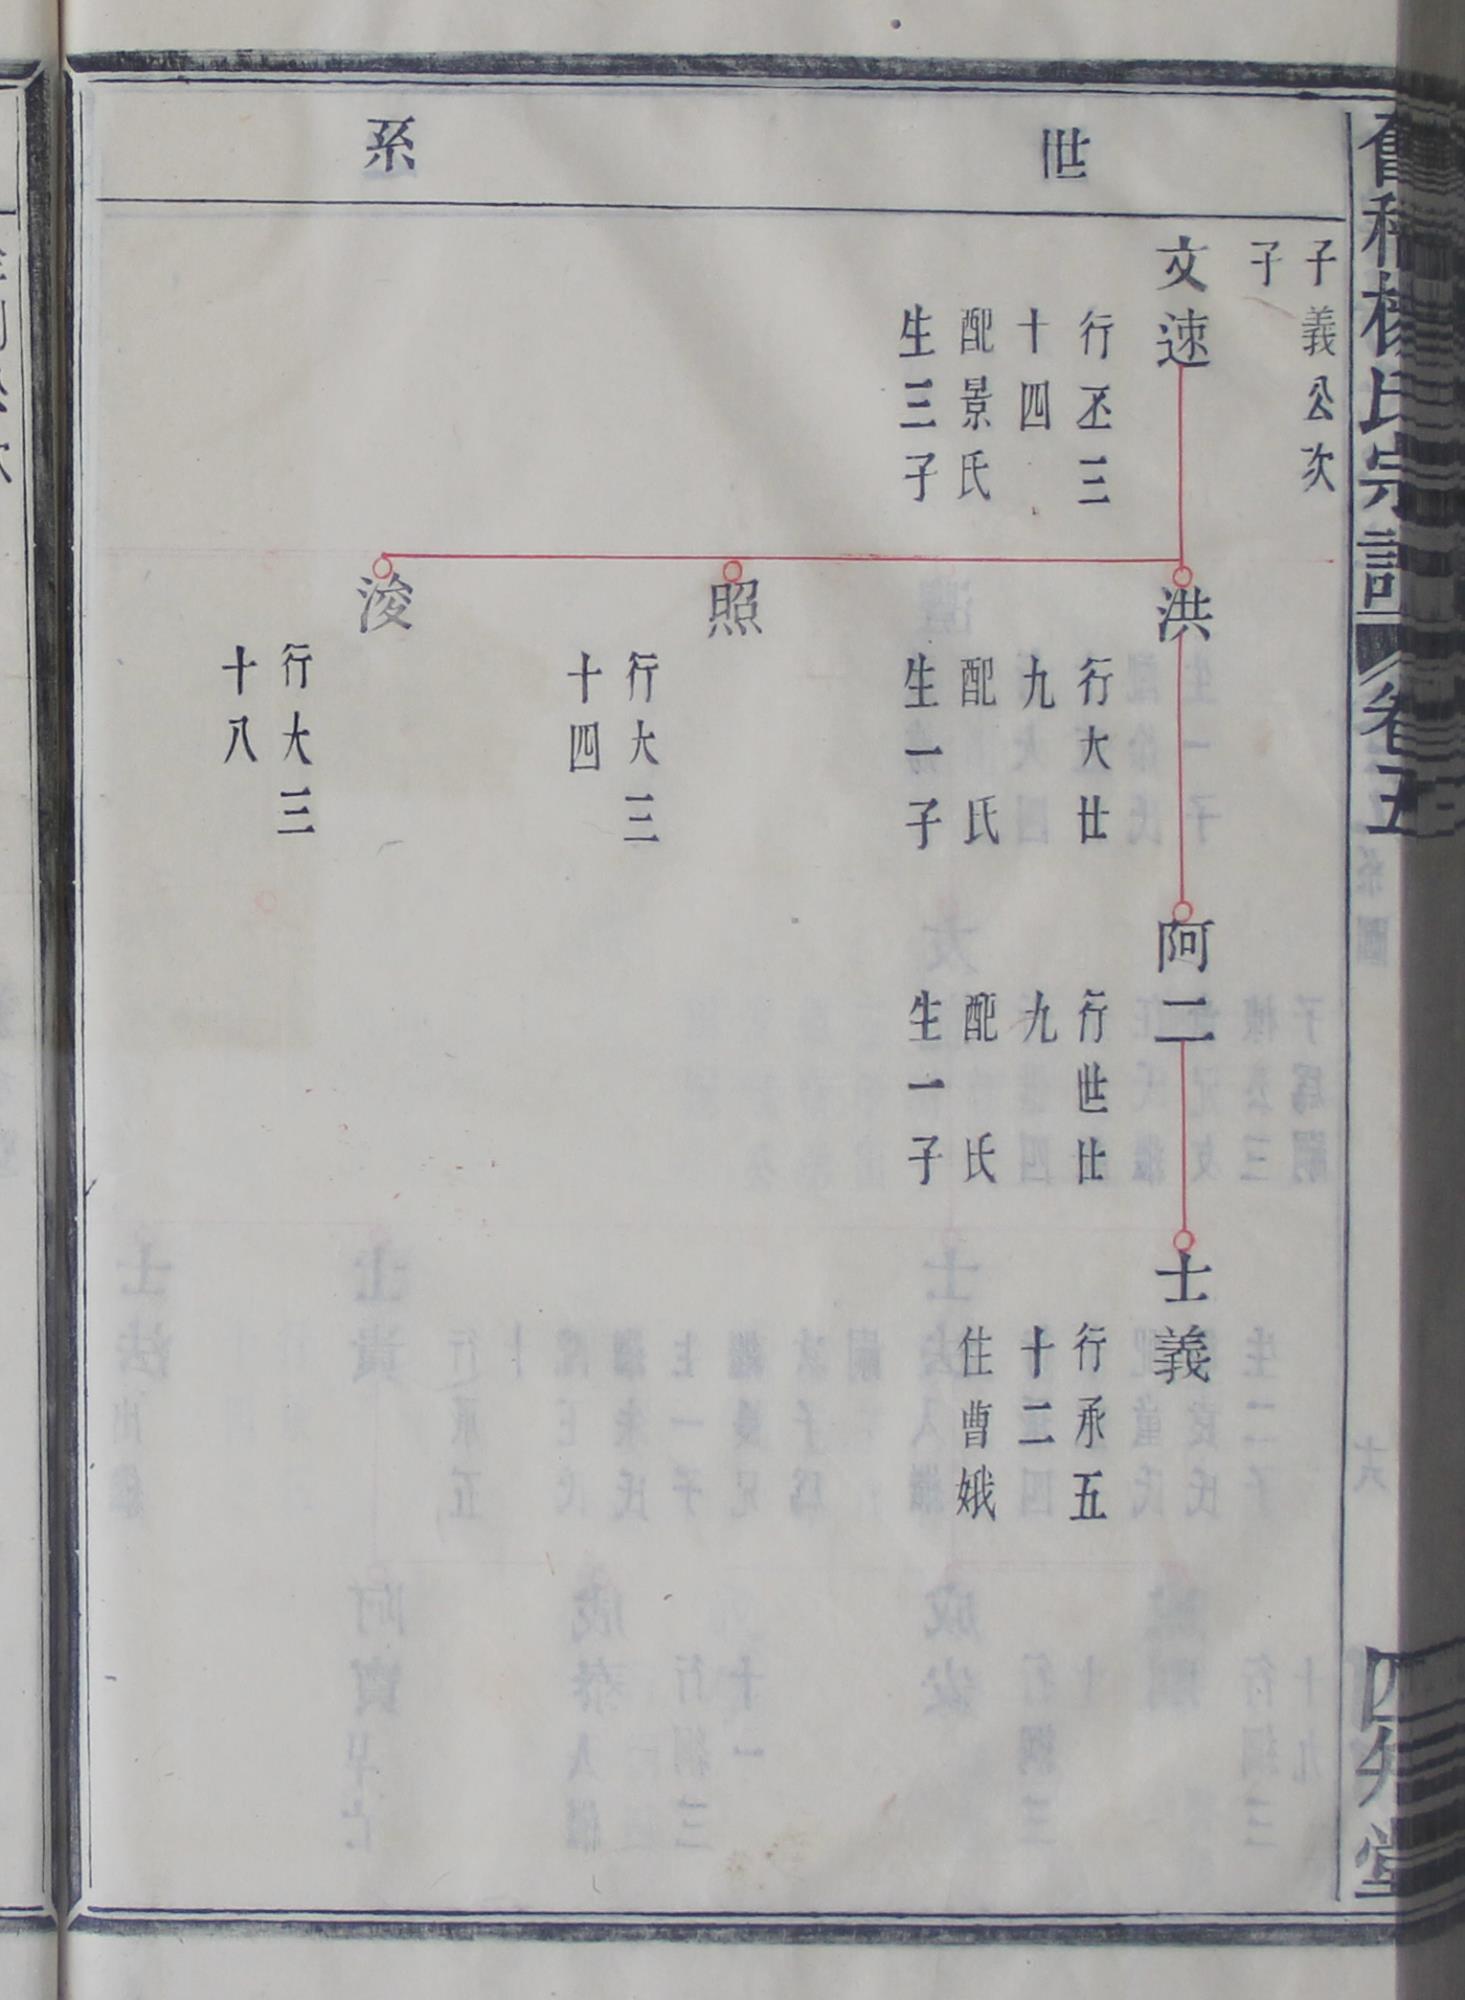 世系
子義公次
子
文速
行丕三
十四
配景氏
生三子
洪
行大廿
九
配 氏
生一子
照
行大三
十四
浚
行大三
十八
阿二
行世廿
九
配 氏
生一子
士義
行承五
十二
住曹娥
氏宗譜 卷五
堂